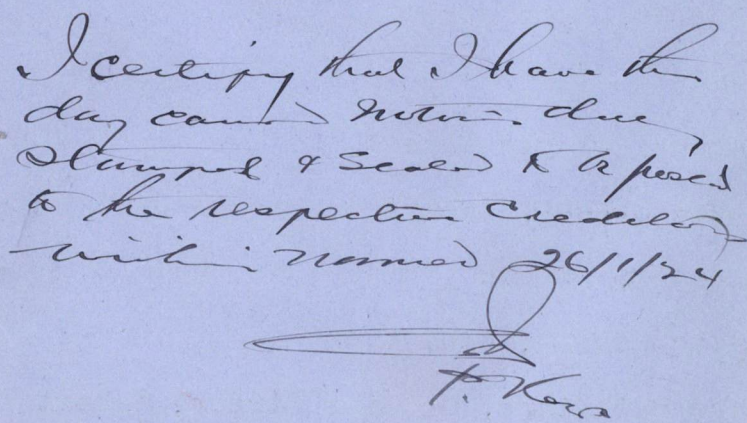 I certify that I have this
day caused Notices duly
stamped & Sealed to be posted
to the respective Creditors
within named 26/1/24